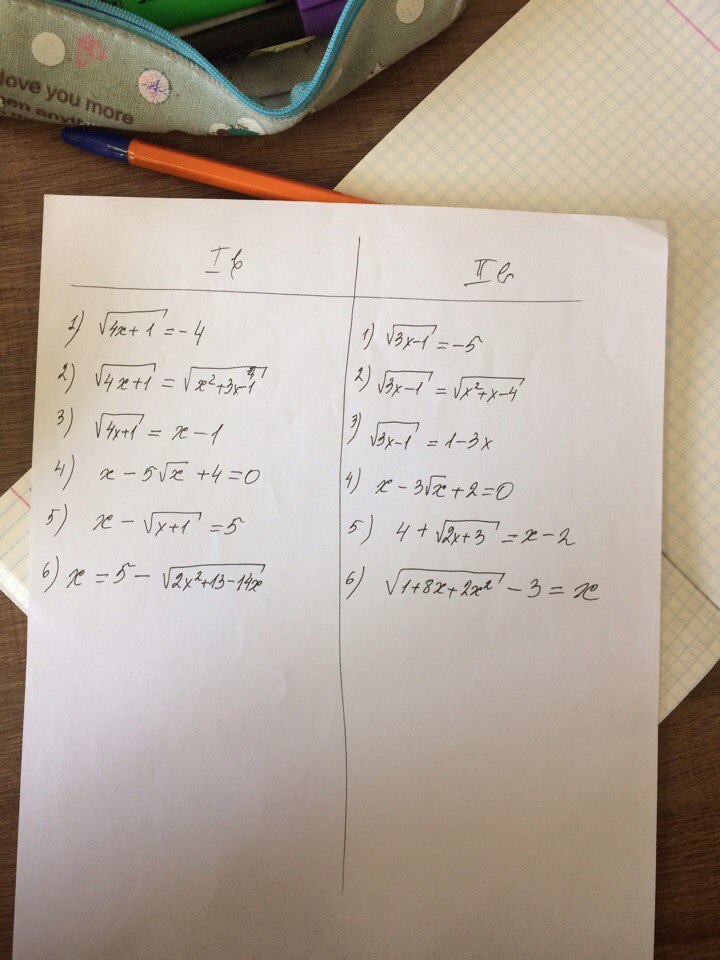 love you more
I в
1) √(4x+1) = -4
2) √(4x+1) = √(x²+3x-1)
3) √(4x+1) = x-1
4) x-5√x+4=0
5) x-√(x+1) = 5
6) x = 5-√(2x²+13-14x)
II в
1) √(3x-1) = -5
2) √(3x-1) = √(x²+x-4)
3) √(3x-1) = 1-3x
4) x-3√x+2=0
5) 4+√(2x+3) = x-2
6) √(1+8x+2x²) -3 = x